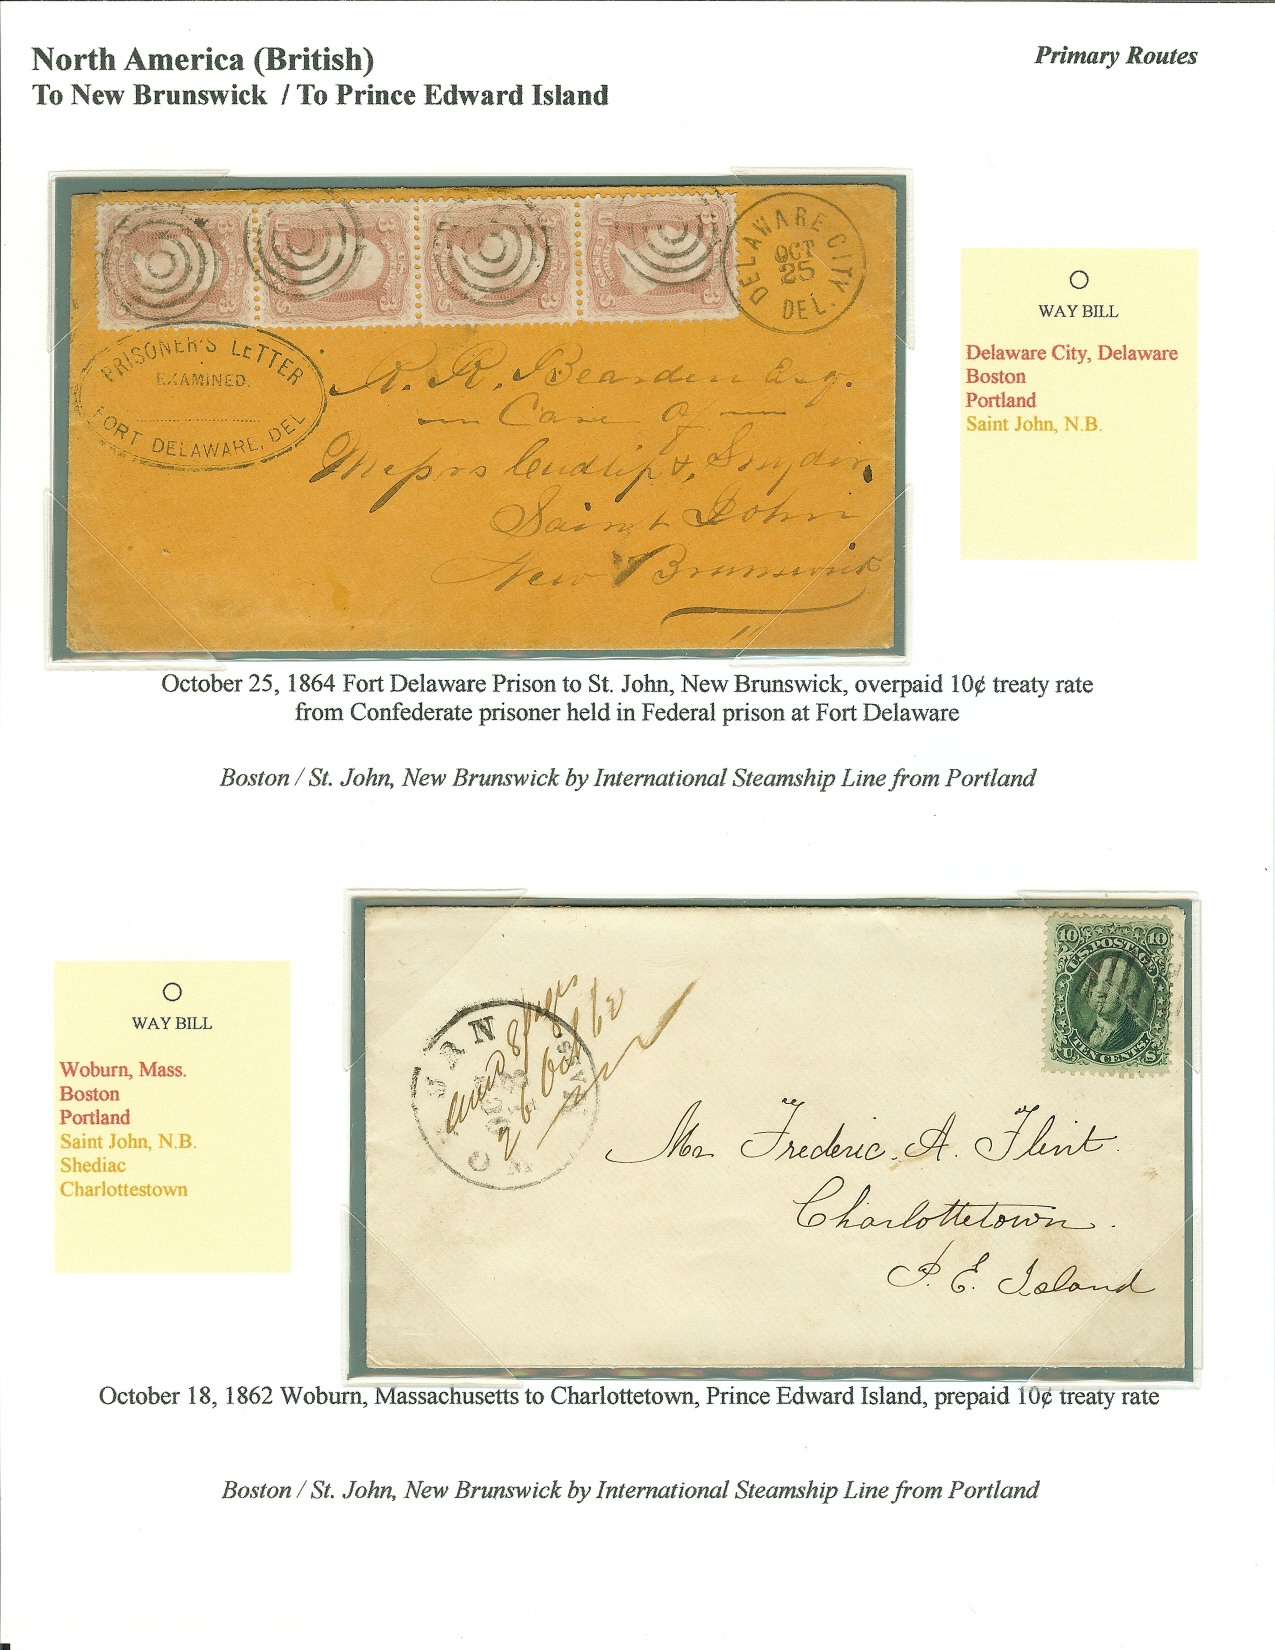 North America (British)
Primary Routes
To New Brunswick / To Prince Edward Island
DELAWARE CITY
OCT
25
DEL.
PRISONER'S LETTER
EXAMINED.
FORT DELAWARE, DEL
R. R. Bearden Esq.
Care of
Messrs Cudlip & Snyder
Saint John
New Brunswick
WAY BILL
Delaware City, Delaware
Boston
Portland
Saint John, N.B.
October 25, 1864 Fort Delaware Prison to St. John, New Brunswick, overpaid 10¢ treaty rate
from Confederate prisoner held in Federal prison at Fort Delaware
Boston / St. John, New Brunswick by International Steamship Line from Portland
WAY BILL
Woburn, Mass.
Boston
Portland
Saint John, N.B.
Shediac
Charlottestown
10 10
U.S. POSTAGE
TEN CENTS.
U S
OCT
MASS
26 Oct 62
Mr Frederic. A. Flint.
Charlottetown.
P. E. Island
October 18, 1862 Woburn, Massachusetts to Charlottetown, Prince Edward Island, prepaid 10¢ treaty rate
Boston / St. John, New Brunswick by International Steamship Line from Portland